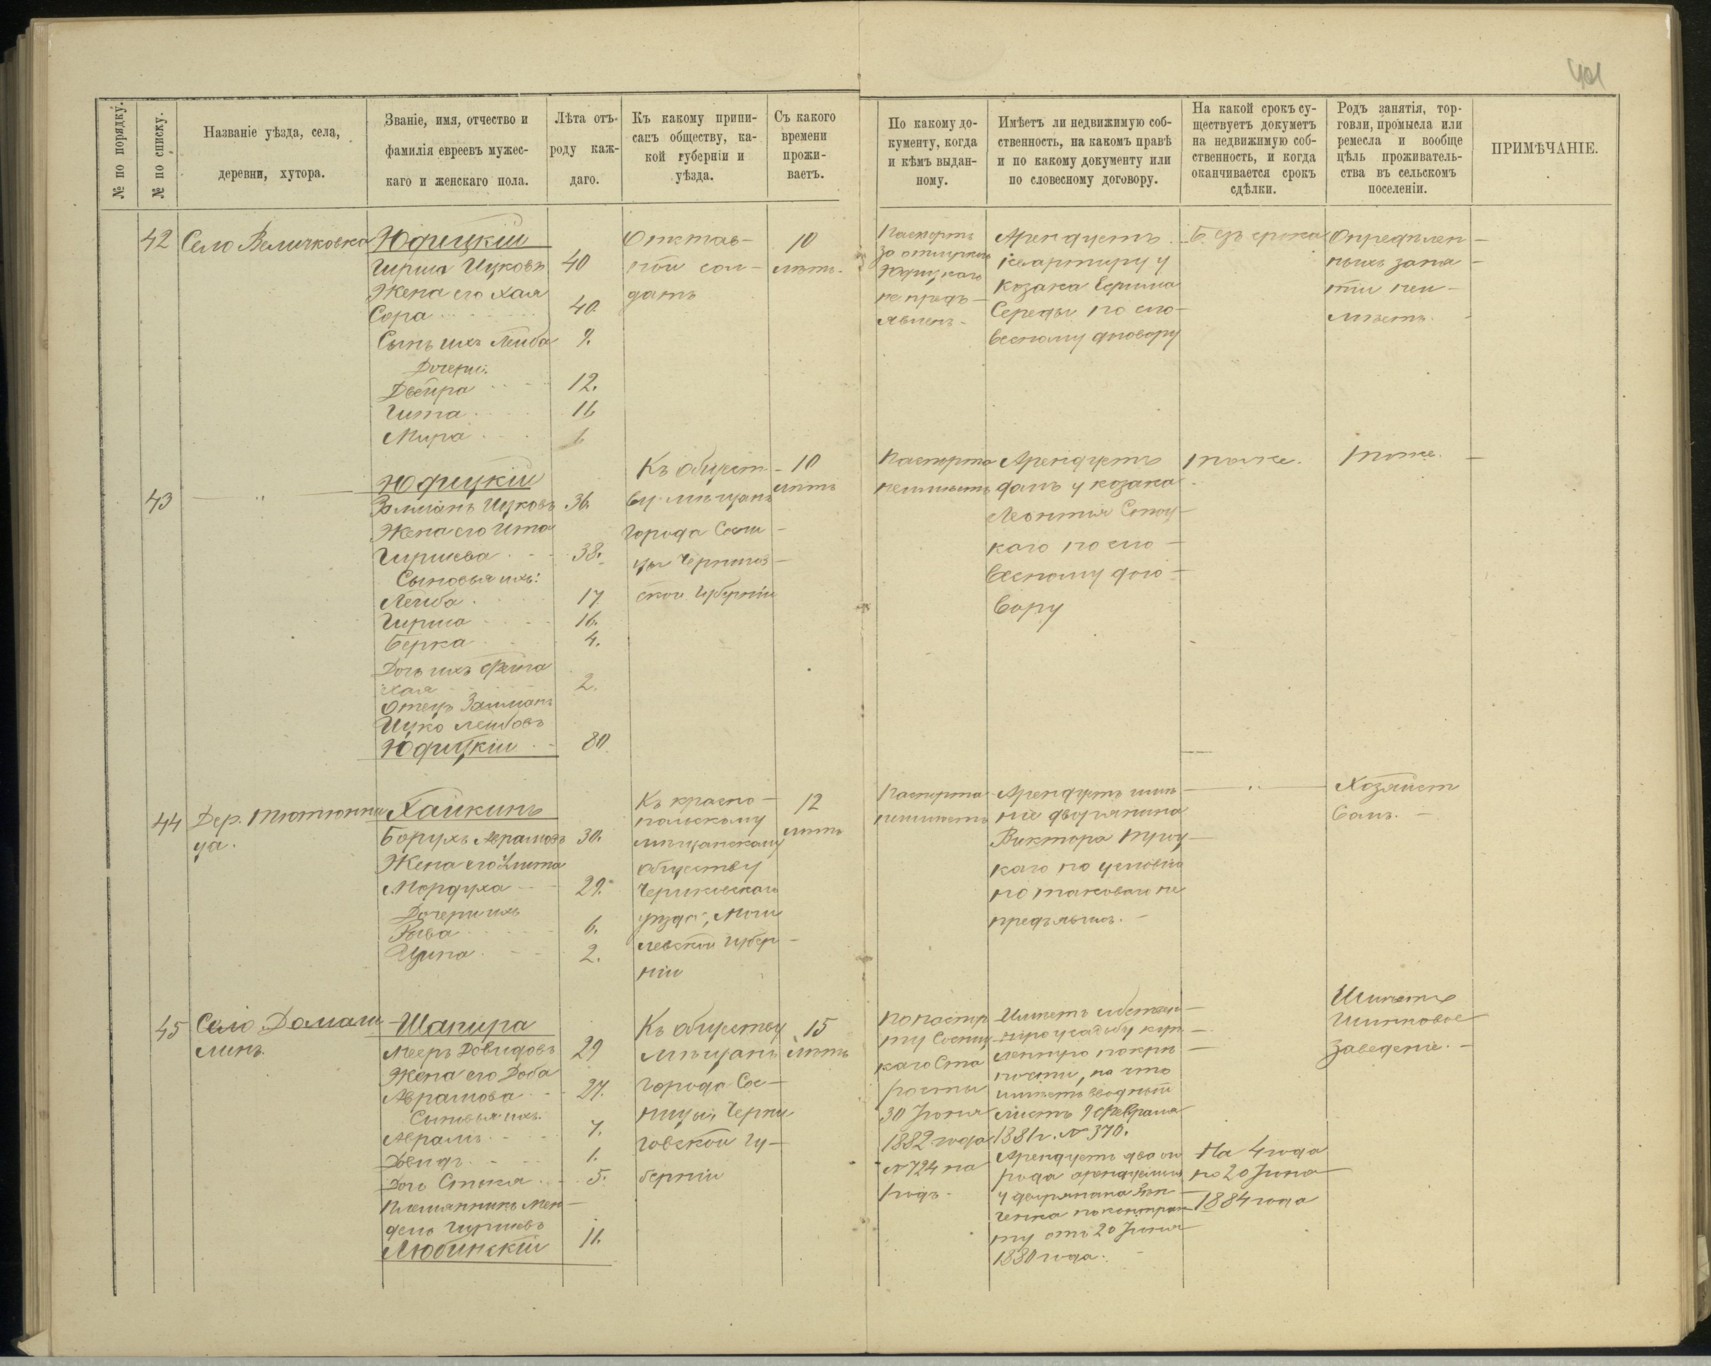 401
№ по порядку.
№ по списку.
Названіе уѣзда, села,
деревни, хутора.
Званіе, имя, отчество и
фамилія евреевъ мужес-
каго и женскаго пола.
Лѣта отъ-
роду каж-
даго.
Къ какому припи-
санъ обществу, ка-
кой губерніи и
уѣзда.
Съ какого
времени
прожи-
ваетъ.
По какому до-
кументу, когда
и кѣмъ выдан-
ному.
Имѣетъ ли недвижимую соб-
ственность, на какомъ правѣ
и по какому документу или
по словесному договору.
На какой срокъ су-
ществуетъ документъ
на недвижимую соб-
ственность, и когда
оканчивается срокъ
сдѣлки.
Родъ занятія, тор-
говли, промысла или
ремесла и вообще
цѣль проживатель-
ства въ сельскомъ
поселеніи.
ПРИМѢЧАНІЕ.
42
Село Величковка
Юдицкій
Гирша Ицковъ 40
Жена его Хая
Сора 40
Сынъ ихъ Лейба 9.
Дочери:
Двейра 12.
Гита 11
Мира
Отстав-
ной сол-
датъ
10
лѣтъ.
Паспортъ
за
Юдицкаго
не предъ-
явленъ.
Арендуетъ
квартиру у
козака
Середы по сло-
весному договору
Безъ срока
Опредѣлен-
ныхъ заня-
тій неи-
мѣетъ.
43
"
Юдицкій
Залманъ Ицковъ 36.
Жена его Ита
Гиршева 38.
Сыновья ихъ:
Лейба 17
Гирша 16.
Берка 4.
Дочь ихъ
Хая 2.
Отецъ Залмана
Ицко Лейбовъ
Юдицкій 80.
Къ общест-
ву мѣщанъ
города Сосни-
цы Чернигов-
ской губерніи
10
лѣтъ
Паспорта
неимѣетъ
Арендуетъ
домъ у козака
Леонтія
каго по сло-
весному дого-
вору
тоже.
тоже.
44
Дер. Тютюнни
ца.
Хайкинъ
Борухъ Абрамовъ 30.
Жена его
Мордуха 29.
Дочери ихъ
Рыва 6.
Ципа 2.
Къ красно-
польскому
мѣщанскому
обществу
Чериковскаго
уѣзда, Моги
левской губер-
ніи
12
лѣтъ
Паспорта
неимѣетъ
Арендуетъ
дворянина
Виктора
каго по условію
но таковаго не
предъявилъ.
"
Хозяйст
вомъ.
45
Село Домаш
линъ
Шапира
Мееръ Довидовъ 29
Жена его Доба
Абрамова 27.
Сыновья ихъ:
Абрамъ 7.
Довидъ 1.
Дочь 5.
Племянникъ Мен-
дель Гиршовъ
Любинскій 11.
Къ обществу
мѣщанъ
города Сос-
ницы, Черни
говской гу-
берніи
15
лѣтъ
По паспор
ту Сосниц
каго Ста
росты
30 Іюня
1882 года
№ 724 на
годъ.
Имѣетъ собствен-
ную усадьбу куп-
ленную по крѣ
пости, на что
имѣетъ вводный
листъ 9 Февраля
1881 г. № 370.
Арендуетъ два ого
рода
у дворянина
ченка по контрак
ту отъ 20 Іюня
1880 года.
На 4 года
по 20 Іюня
1884 года
Имѣетъ
Шинковое
заведеніе.